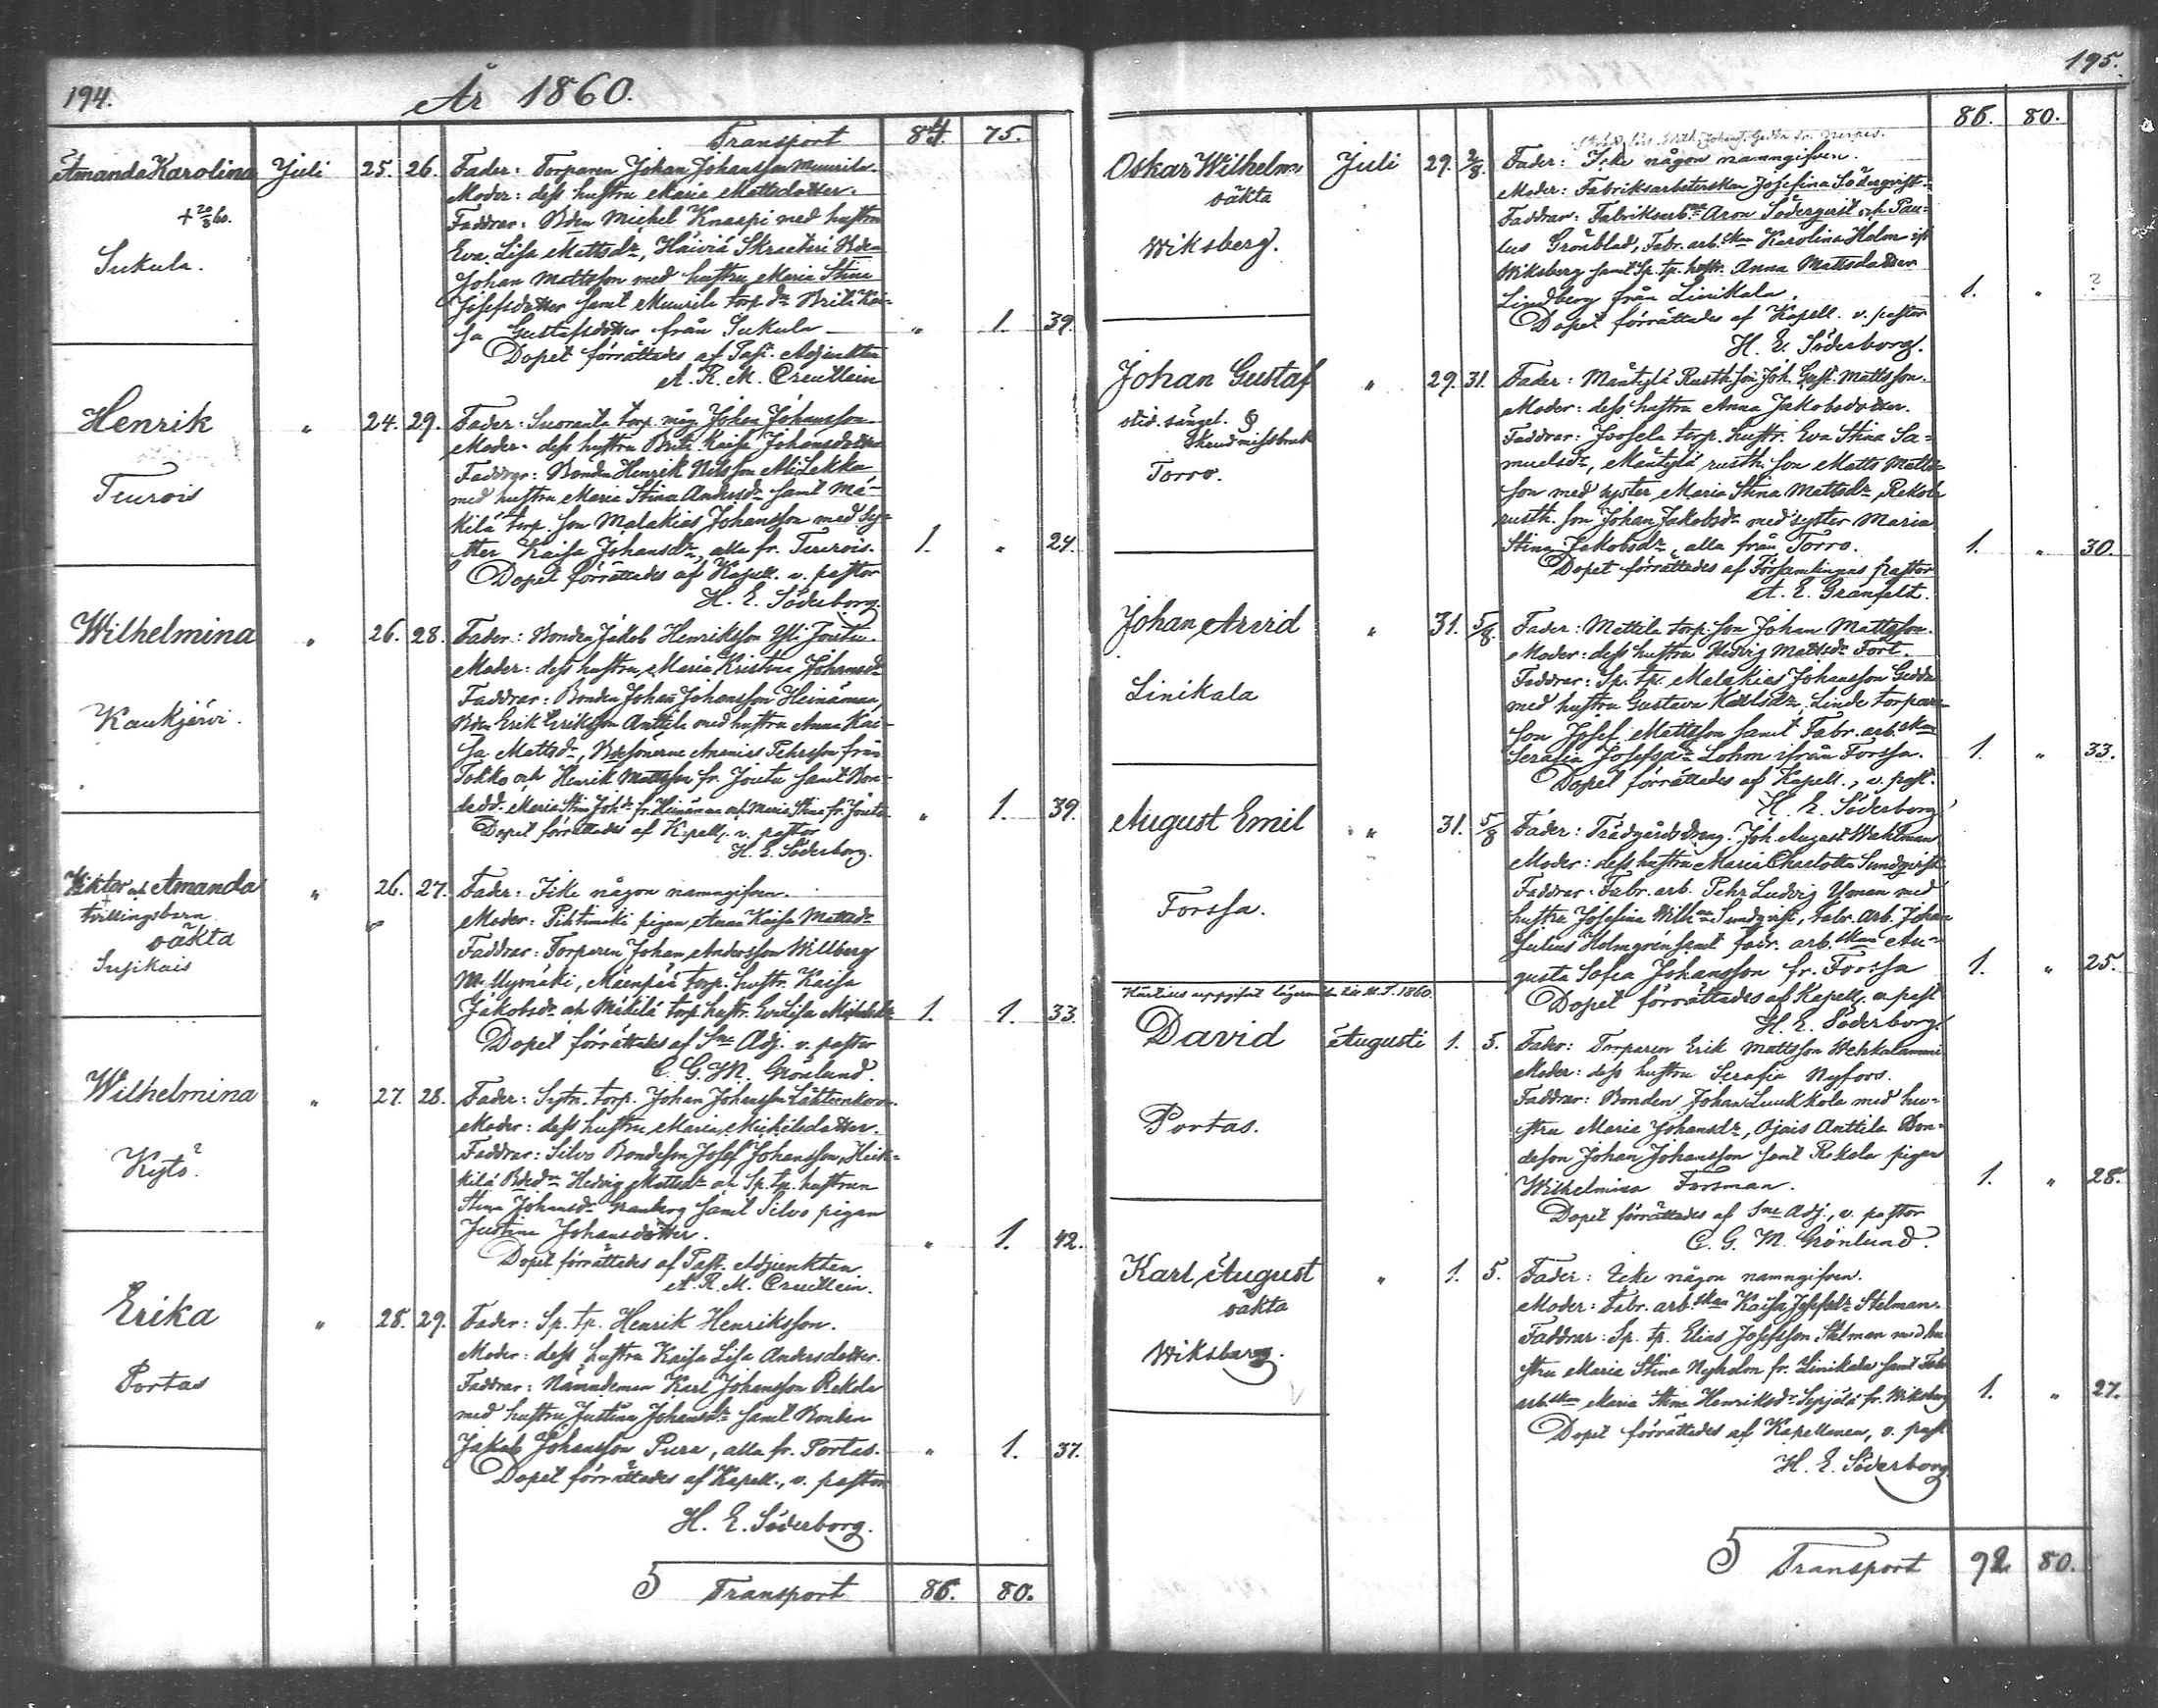 194.
År 1860.
Transport 84. 75.
Amanda Karolina Juli 25. 26. Fader: Torparen Johan Johansson Murrila.
Moder: dess hustru Maria Mattsdotter.
+ 20/8 60.
Faddrar: Bden Michel Knaapi med hustru
Eva Lisa Mattsdr, Häiviä Skreeteri Bden
Sukula.
Johan Mattsson med hustru Maria Stina
Josefsdotter samt Murrila torp.dr Brita Kai-
sa Gustafsdotter från Sukula „ 1. 39.
Dopet förrättades af Past. Adjunkten
A. R. M. Creutlein
Henrik „ 24. 29. Fader: Suoranta torp. måg Johan Johansson
Moder: dess hustru Brita Kaisa Johansdotter
Faddrar: Bonden Henrik Nilsson
Teurois
med hustru Maria Stina Andersdr samt Mä-
kilä torp. son Malakias Johansson med sy-
ster Kaisa Johansdr, alla fr. Teurois. 1. „ 24.
Dopet förrättades af Kapell. v. pastor
H. E. Söderborg.
Wilhelmina „ 26. 28. Fader: Bonden Jakob Henriksson Yli Joutu.
Moder: dess hustru Maria Kristina Johansdr
Faddrar: Bonden Johan Johansson Heinämaa,
Kaukjärvi.
Bden Erik Eriksson Anttila med hustru Anna Kai-
sa Mattsdr, Bdesönerne Ananias Pehrsson från
Tokko och Henrik Mattsson fr. Joutu samt Bon-
dedd. Maria Stina Johdr fr. Heinämaa och Maria Stina fr. Joutu „ 1. 39.
Dopet förrättades af Kapell. v. pastor
H. E. Söderborg.
Viktor och Amanda „ 26. 27. Fader: Icke någon namngifven.
tvillingsbarn
Moder: Pihtimäki pigan Anna Kaisa Mattsdr
oäkta
Faddrar: Torparen Johan Andersson Willberg
Susikais
Myllymäki, Mäenpää torp. hustr. Kaisa
Jakobsdr och Mäkilä torp. hustr. Eva Lisa Michelsdr 1. 1. 33.
Dopet förrättades af Sne Adj. v. pastor
C. G. M. Grönlund.
Wilhelmina „ 27. 28. Fader: Sytn. torp. Johan Johansson Lähteenkorva.
Moder: dess hustru Maria Michelsdotter.
Faddrar: Silvo Bondeson Josef Johansson, Heik-
Kytö.
kilä Bdedr Hedvig Mattsdr och Sp. tp. hustrun
Stina Johansdr Granberg samt Silvo pigan
Justina Johansdotter. „ 1. 42.
Dopet förrättades af Past. Adjunkten
A. R. M. Creutlein.
Erika „ 28. 29. Fader: Sp. tp. Henrik Henriksson.
Moder: dess hustru Kaisa Lisa Andersdotter.
Portas
Faddrar: Nämndeman Karl Johansson Rekola
med hustru Justina Johansdr samt Bonden
Jakob Johansson Pura, alla fr. Portas. „ 1. 37.
Dopet förrättades af Kapell., v. pastor
H. E. Söderborg.
Transport 86. 80.
195.
86. 80.
Oskar Wilhelm Juli 29. 2/8. Fader: Icke någon namngifven.
oäkta
Moder: Fabriksarbeterskan Josefina Söderqvist.
Wiksberg.
Faddrar: Fabriksarb.ne Aron Söderqvist och Pau-
lus Grönblad, Fabr. arb.skan Karolina Holm ifr
Wiksberg samt Sp. tp. hustr. Anna Mattsdotter
Lindberg från Linikala. 1. „ ?
Dopet förrättades af Kapell. v. pastor
H. E. Söderborg.
Johan Gustaf „ 29. 31. Fader: Mäntylä Rusth. son Joh. Gust. Mattsson.
Moder: dess hustru Anna Jakobsdotter.
Torro.
Faddrar: Joosela torp. hustr. Eva Stina Sa-
muelsdr, Mäntylä rusth. son Matts Matts-
son med syster Maria Stina Mattsdr, Rekola
rusth. son Johan Jakobsd. med syster Maria
Stina Jakobsdr, alla från Torro. 1. „ 30.
Dopet förrättades af Församlingens pastor
A. E. Granfelt.
Johan Arvid „ 31. 5/8. Fader: Mattila torp. son Johan Mattsson.
Moder: dess hustru Hedvig Mattsdr Fort.
Linikala
Faddrar: Sp. tp. Malakias Johansson Gedda
med hustru Gustava Karlsdr, Linde torpare
son Josef Mattsson samt Fabr. arb.skan
Serafia Josefsdr Lohm ifrån Forssa. 1. „ 33.
Dopet förrättades af Kapell., v. past.
H. E. Söderborg
August Emil „ 31. 5/8 Fader: Trädgårdsdreng. Joh. August Wahlman
Moder: dess hustru Maria Charlotta Sundqvist
Forssa.
Faddrar: Fabr. arb. Pehr Ludvig Yman med
hustru Josefina Wilhna Sundqvist, Fabr. arb. Johan
Julius Holmgrén samt fabr. arb.skan Au-
gusta Sofia Johansson fr. Forssa 1. „ 25.
Dopet förrättades af Kapell. v. past
H. E. Söderborg.
David Augusti 1. 5. Fader: Torparen Erik Mattsson Vehkalammi
Moder: dess hustru Serafia Nyfors.
Portas.
Faddrar: Bonden Johan Luukkola med hu-
stru Maria Johansdr, Ojais Anttila Bon-
deson Johan Johansson samt Rekola pigan
Wilhelmina Forsman. 1. „ 28.
Dopet förrättades af Sne Adj., v. pastor
C. G. M. Grönlund.
Karl August „ 1. 5. Fader: Icke någon namngifven.
oäkta
Moder: Fabr. arb.skan Kaisa Josefsdr Stelman.
Wiksberg.
Faddrar: Sp. tp. Elias Josefsson Stelman med hu-
stru Maria Stina Nyholm fr. Linikala samt Fabr
arb.skan Maria Stina Henriksdr Sepjälä fr. Wiksberg 1. „ 27.
Dopet förrättades af Kapellanen, v. past
H. E. Söderborg.
Transport 92 80.